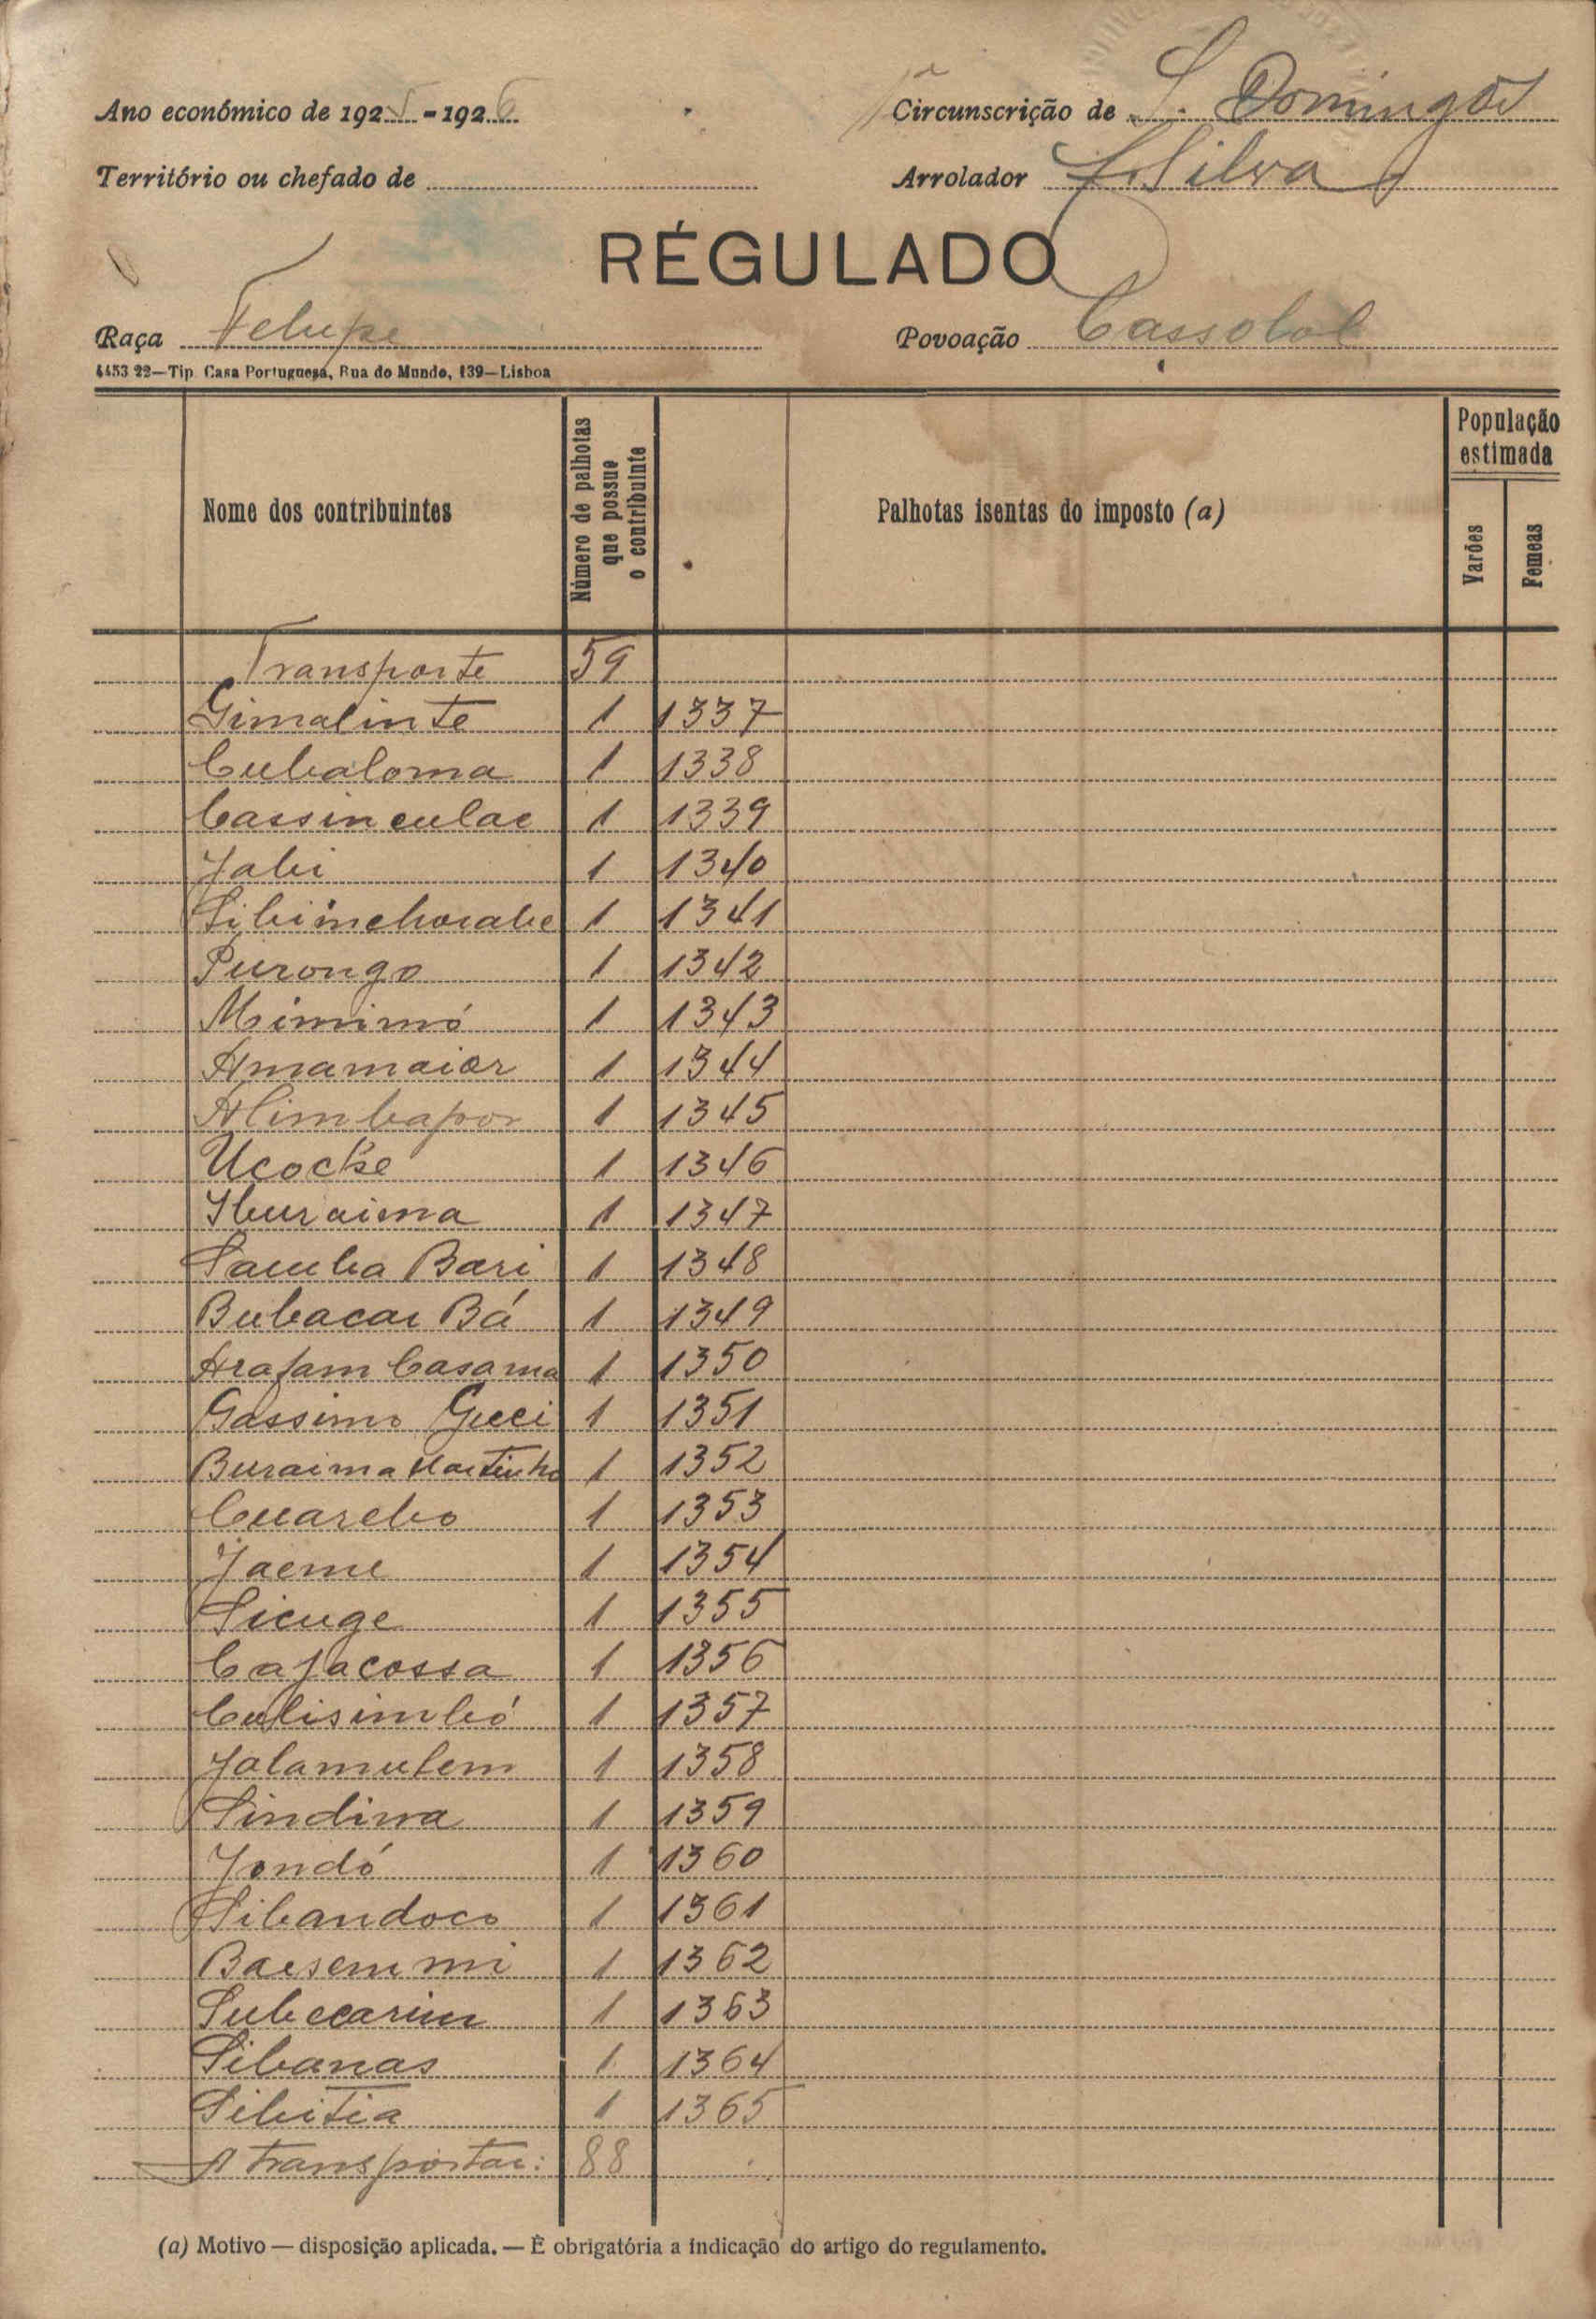 Ano económico de 1925-1926
Circunscrição de S. Domingos
Território ou chefado de
Arrolador Silva
RÉGULADO
Raça Felupe
Povoação Cassolol
4453 22—Tip. Casa Portuguesa, Rua do Mundo, 139—Lisboa
Nome dos contribuintes
Número de palhotas que possue o contribuinte
Palhotas isentas do imposto (a)
População estimada
Varões
Femeas
Transporte 59
Gimalinte 1 1337
Cubaloma 1 1338
Cassinculac 1 1339
Jabi 1 1340
1 1341
Purongo 1 1342
Mimimó 1 1343
Amamaior 1 1344
Alimbapor 1 1345
Ucocke 1 1346
Iburaima 1 1347
Samba Bari 1 1348
Bubacar Bá 1 1349
Arafam Casama 1 1350
Gassimo Gueci 1 1351
Buraima Martinho 1 1352
Cuarebo 1 1353
Jaeme 1 1354
Sicuge 1 1355
Cajacossa 1 1356
Culisimbó 1 1357
Jalamulem 1 1358
Sindima 1 1359
Jondó 1 1360
Sibandoco 1 1361
Baesemmi 1 1362
Subecarim 1 1363
Sibanas 1 1364
Sibitia 1 1365
A transportar: 88
(a) Motivo — disposição aplicada. — É obrigatória a indicação do artigo do regulamento.